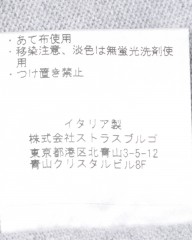 ・あて布使用
・移染注意、淡色は無蛍光洗剤使
用
・つけ置き禁止
イタリア製
株式会社ストラスブルゴ
東京都港区北青山3-5-12
青山クリスタルビル8F